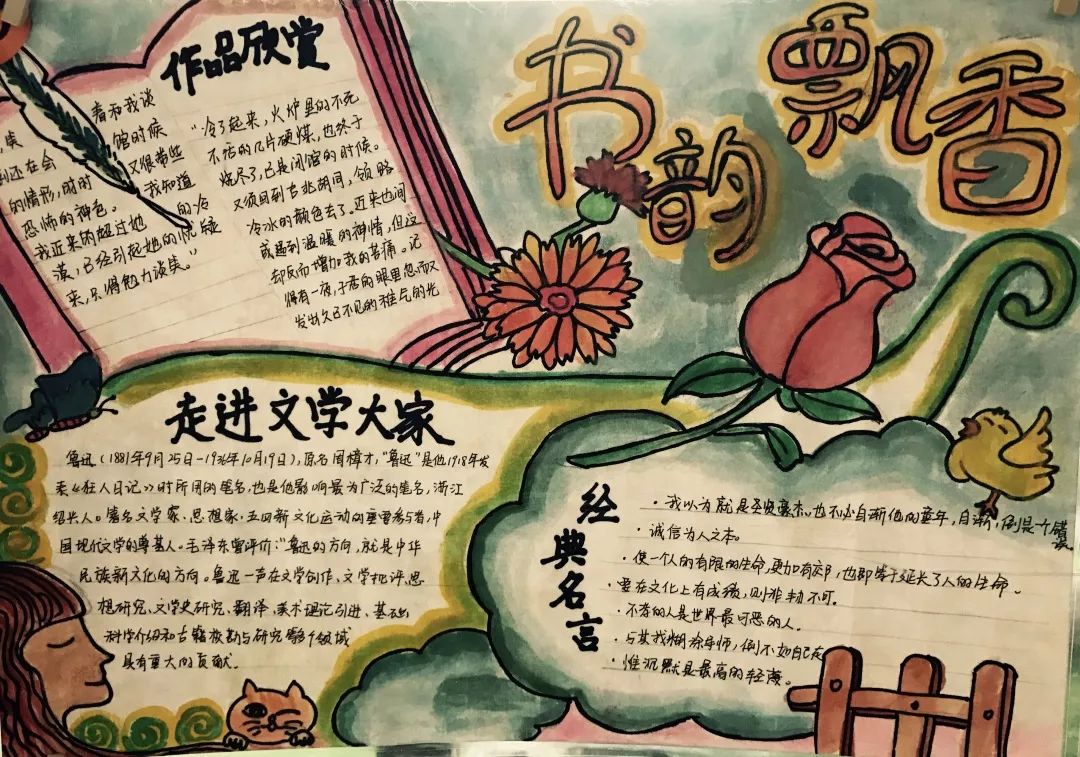 书韵飘香
作品欣赏
春和我谈
笑 馆时候
到还在会 又很带些
的情形,时时 我知道
恐怖的神色。 的冷
我近来的超过她
漠,已经引起她的忧疑
来,只得勉力谈笑。”
“冷了起来,火炉里的不死
不活的几片硬煤,也终于
烧尽了,已是闭馆的时候。
又须回到吉兆胡同,领略
冷冰的颜色去了。近来也间
或遇到温暖的神情,但这
却反而增加我的苦痛。记
得有一夜,子君的眼里忽而又
发出久已不见的稚气的光
走进文学大家
鲁迅(1881年9月25日-1936年10月19日),原名周樟才,“鲁迅”是他1918年发
表《狂人日记》时所用的笔名,也是他影响最为广泛的笔名,浙江
绍兴人。著名文学家、思想家,五四新文化运动的重要参与者,中
国现代文学的奠基人。毛泽东曾评价:“鲁迅的方向,就是中华
民族新文化的方向。鲁迅一声在文学创作、文学批评、思
想研究、文学史研究、翻译、美术理论引进、基础
科学介绍和古籍校勘与研究等个领域
具有重大的贡献。
经典名言
·我以为就是圣贤豪杰,也不必自惭他的童年,自惭,倒是一个错误
·诚信为人之本。
·使一个人的有限的生命,更加有效,也即等于延长了人的生命。
·要在文化上有成绩,则非韧不可。
·不孝的人是世界最可恶的人。
·与其找糊涂导师,倒不如自己走
·惟沉默是最高的轻蔑。